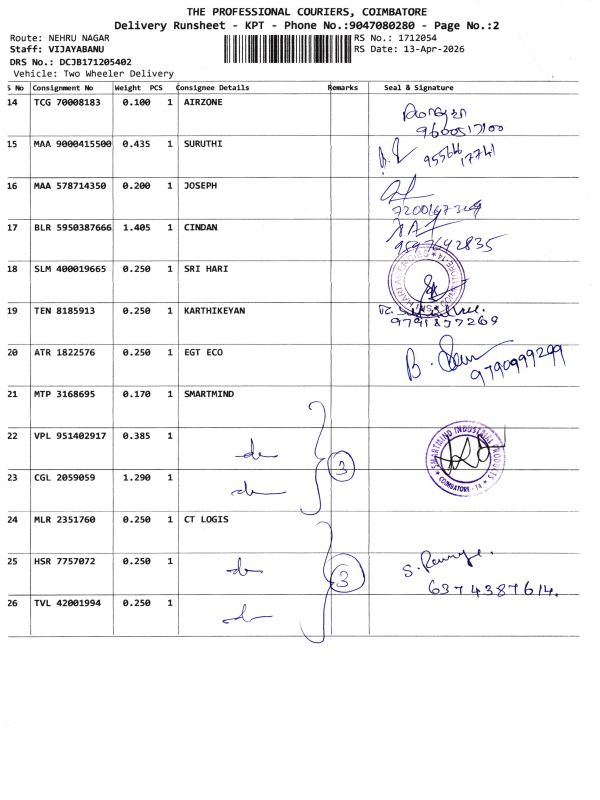 THE PROFESSIONAL COURIERS, COIMBATORE
Delivery Runsheet - KPT - Phone No.:9047080280 - Page No.:2
Route: NEHRU NAGAR
RS No.: 1712054
Staff: VIJAYABANU
RS Date: 13-Apr-2026
DRS No.: DCJB171205402
Vehicle: Two Wheeler Delivery
S No Consignment No Weight PCS Consignee Details Remarks Seal & Signature
14 TCG 70008183 0.100 1 AIRZONE
15 MAA 9000415500 0.435 1 SURUTHI
16 MAA 578714350 0.200 1 JOSEPH
17 BLR 5950387666 1.405 1 CINDAN
18 SLM 400019665 0.250 1 SRI HARI
19 TEN 8185913 0.250 1 KARTHIKEYAN
9791877269
20 ATR 1822576 0.250 1 EGT ECO
9790999299
21 MTP 3168695 0.170 1 SMARTMIND
22 VPL 951402917 0.385 1
3
SMARTMIND INDUSTRIAL PRODUCTS
COIMBATORE - 14
23 CGL 2059059 1.290 1
24 MLR 2351760 0.250 1 CT LOGIS
25 HSR 7757072 0.250 1
3
6374387614.
26 TVL 42001994 0.250 1